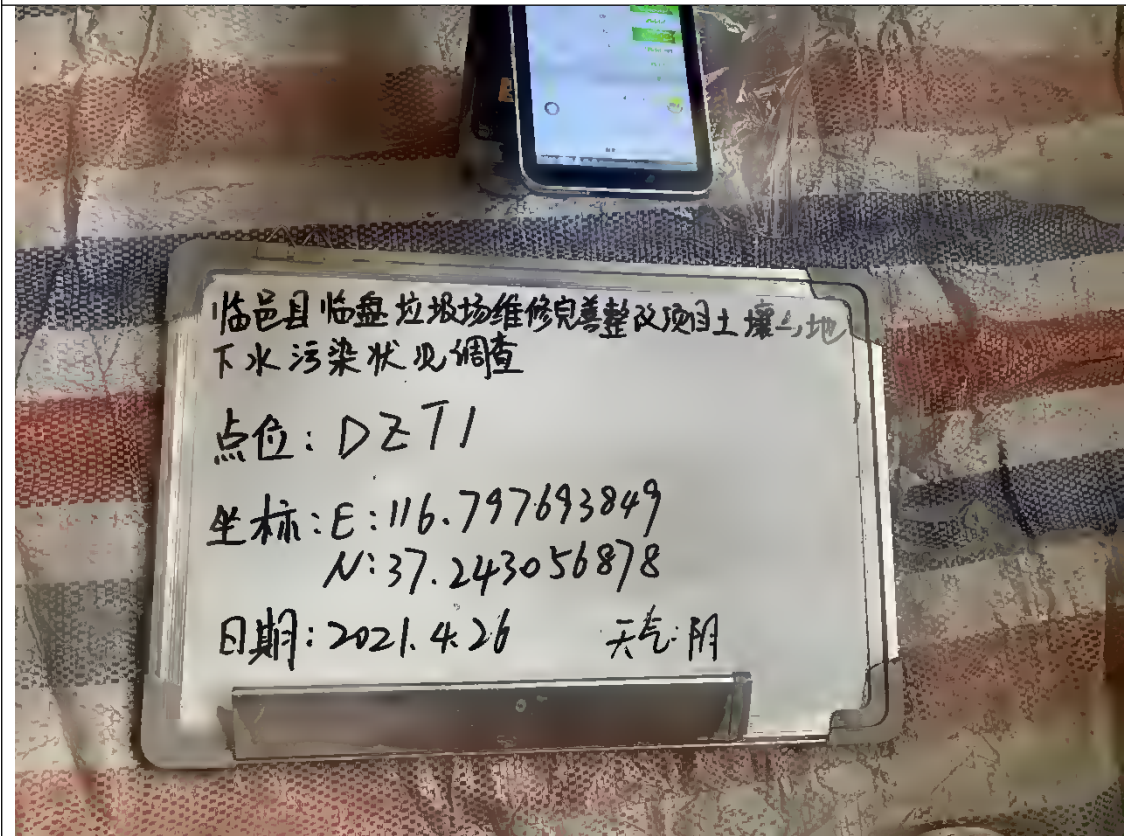 临邑县临盘垃圾场维修完善整改项目土壤与地
下水污染状况调查
点位：DZT1
坐标：E：116.797693849
N：37.243056878
日期：2021.4.26 天气：阴